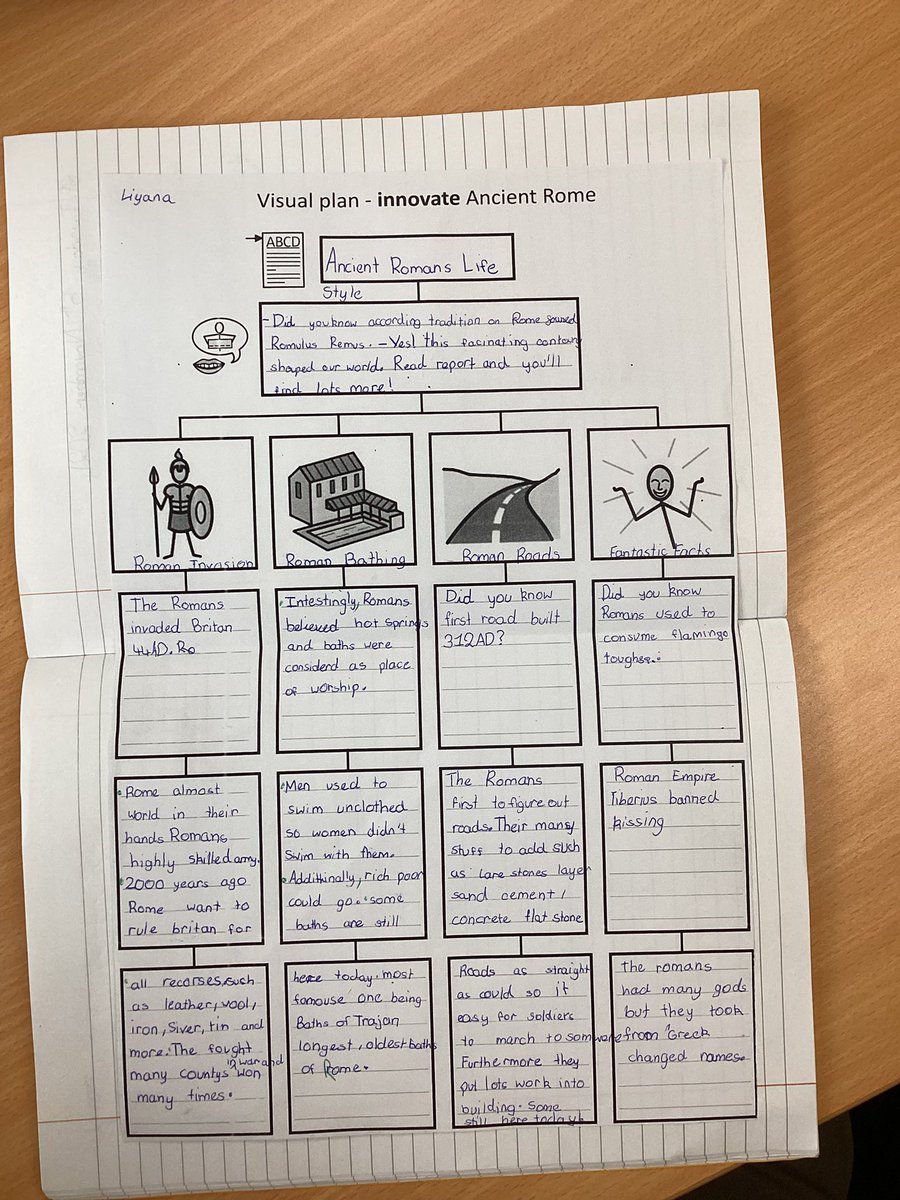 Liyana
Visual plan - innovate Ancient Rome
ABCD
Ancient Romans Life
Style
- Did you know according tradition on Rome
Romulus Remus. - Yes! this facinating
shaped our world. Read report and you'll
find lots more!
Roman Invasion
The Romans
invaded Britan
44AD. Ro
Rome almost
world in their
hands Romans
highly skilled amy.
2000 years ago
Rome want to
rule britan for
all recorses, such
as leather, wool,
iron, Siver, tin and
more. The fought
in war and
many countys won
many times.
Roman Bathing
Intestingly, Romans
believed hot springs
and baths were
considerd as place
of worship.
Men used to
swim unclothed
so women didn't
swim with them.
Addithinally, rich poor
could go. some
baths are still
here today. most
famouse one being
Baths of Trajan
longest, oldest baths
of Rome.
Roman Roads
Did you know
first road built
312AD?
The Romans
first to figure out
roads. Their many
stuff to add such
as Lare stones layer
sand cement/
concrete flat stone
Roads as straight
as could so it
easy for soldiers
to march to somware
Furthermore they
put lots work into
building. Some
still here today
Fantastic Facts
Did you know
Romans used to
consume flamingo
Roman Empire
Tiberius banned
kissing
The romans
had many gods
but they took
from Greck
changed names.